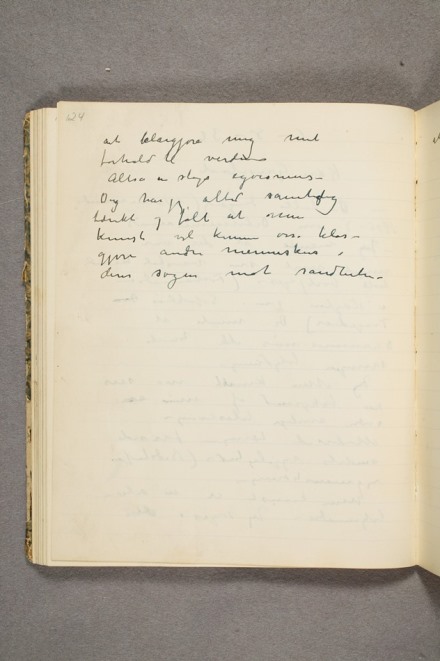 24
at klargjøre mig mit
forhold til verden
Altså en slags egoisme –
Dog har jeg altid samtidig
tænkt og følt at min
kunst vil kunne også klar-
gjøre andre mennesker i
deres søgen mot sandheden –